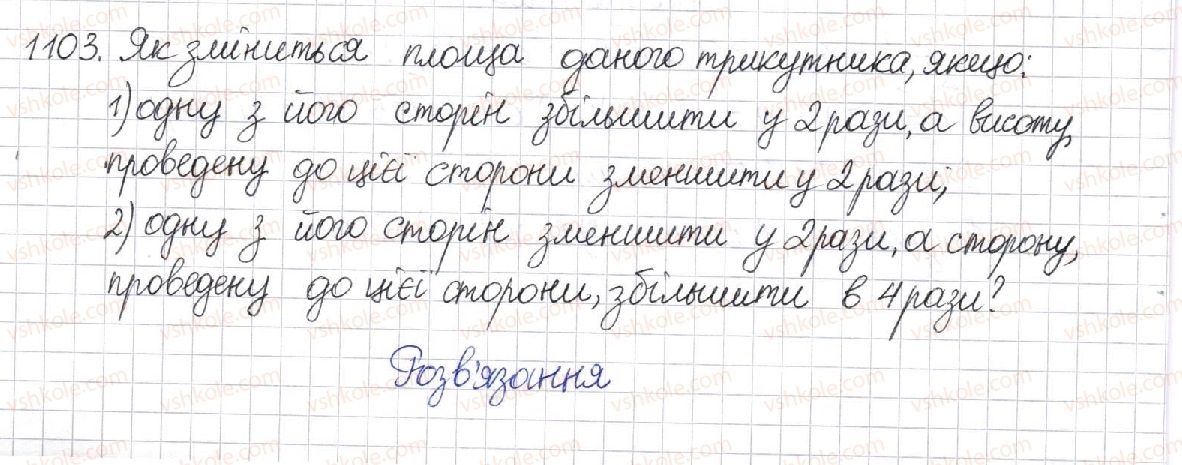 1103. Як зміниться площа даного трикутника, якщо:
1) одну з його сторін збільшити у 2 рази, а висоту,
проведену до цієї сторони зменшити у 2 рази;
2) одну з його сторін зменшити у 2 рази, а сторону,
проведену до цієї сторони, збільшити в 4 рази?
Розв'язання